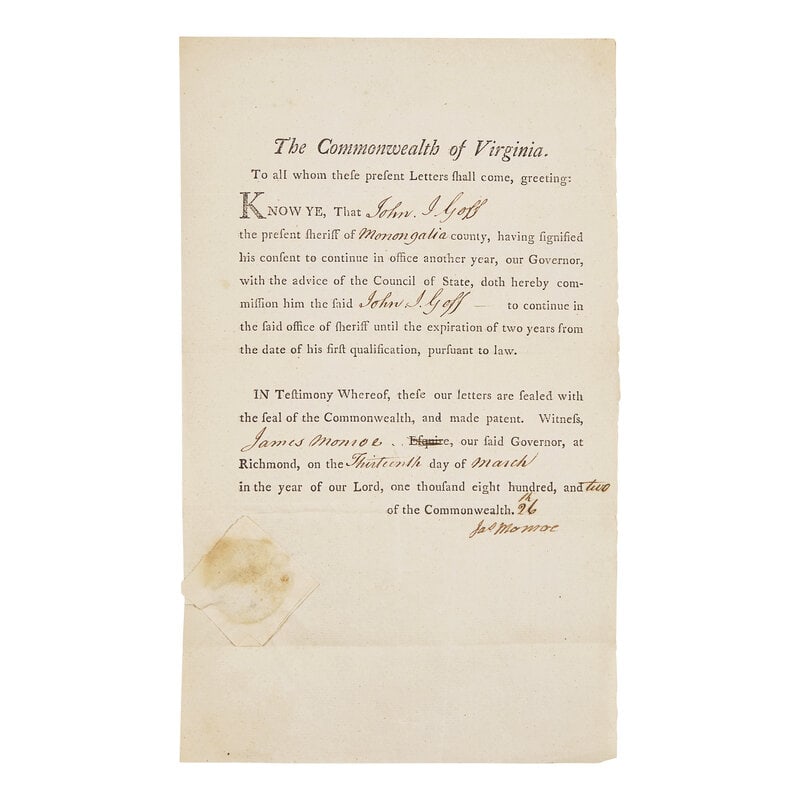 The Commonwealth of Virginia.
To all whom theſe preſent Letters ſhall come, greeting:
KNOW YE, That John J Goff
the preſent ſheriff of Monongalia county, having ſignified
his conſent to continue in office another year, our Governor,
with the advice of the Council of State, doth hereby com-
miſſion him the ſaid John J. Goff — to continue in
the ſaid office of ſheriff until the expiration of two years from
the date of his firſt qualification, purſuant to law.
IN Teſtimony Whereof, theſe our letters are ſealed with
the ſeal of the Commonwealth, and made patent. Witneſs,
James Monroe .. Eſquire, our ſaid Governor, at
Richmond, on the Thirteenth day of March
in the year of our Lord, one thouſand eight hundred, and two
of the Commonwealth. 26th
Jas Monroe